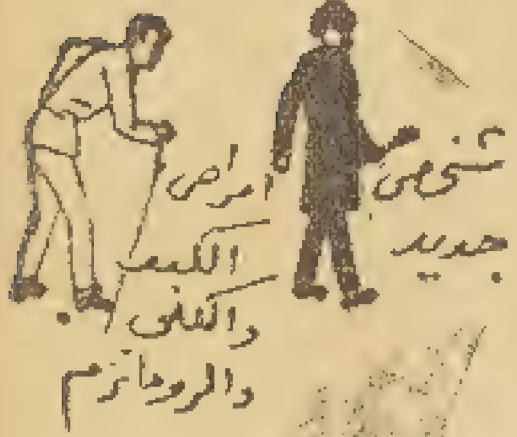 شخص
جديد
امراض
الكبد
والكلى
والروماتزم